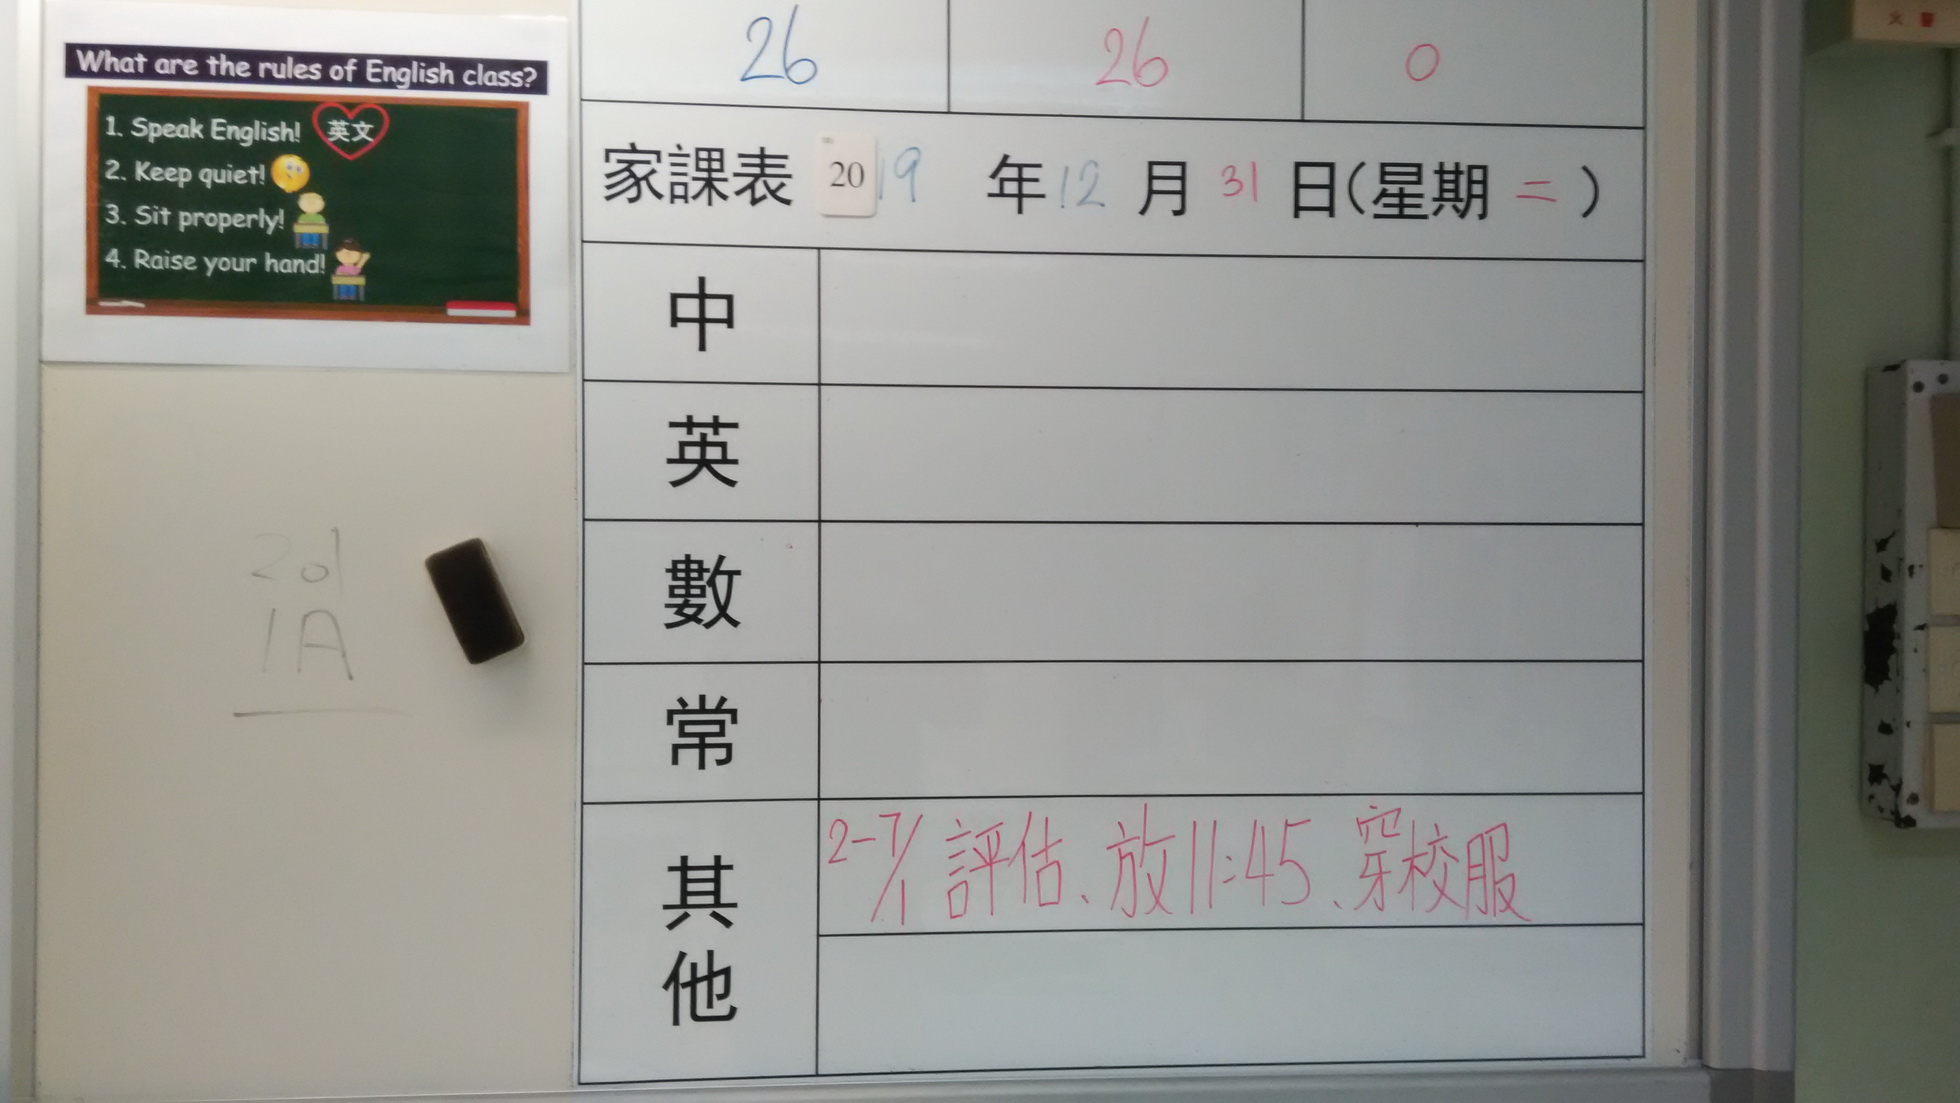 What are the rules of English class?
1. Speak English! 英文
2. Keep quiet!
3. Sit properly!
4. Raise your hand!
201
1A
26 26 0
家課表 2019 年 12 月 31 日(星期 二 )
中
英
數
常
其他
2-7/1 評估、放11:45、穿校服
火 警